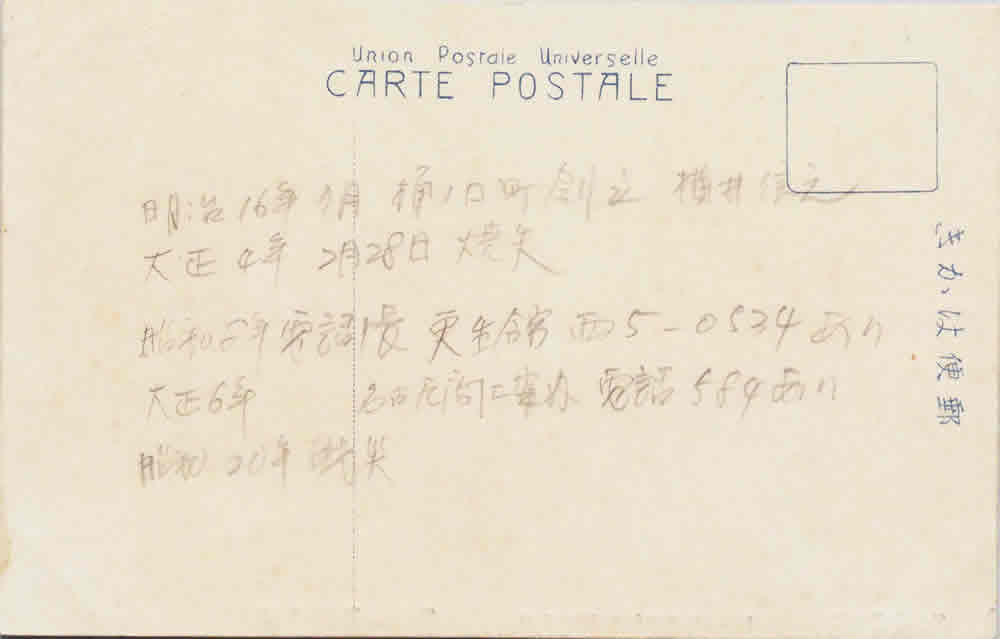 Union Postale Universelle
CARTE POSTALE
明治16年 月 桶 町 創立 横井信之
大正4年 2月28日 焼失
昭和 年電話 長 更生館 西5-0534あり
大正6年 名古屋商工案内 電話 584あり
昭和20年 焼失
きかは便郵